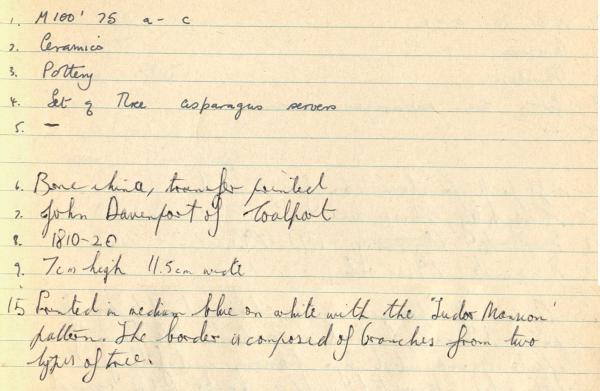 1. M100' 75 a - c
2. Ceramics
3. Pottery
4. Set of Three asparagus servers
5. —
6. Bone china, transfer printed
7. John Davenport of Coalport
8. 1810-20
9. 7cm high 11.5cm wide
15 Printed in medium blue on white with the 'Tudor Mansion'
pattern. The border is composed of branches from two
types of tree.